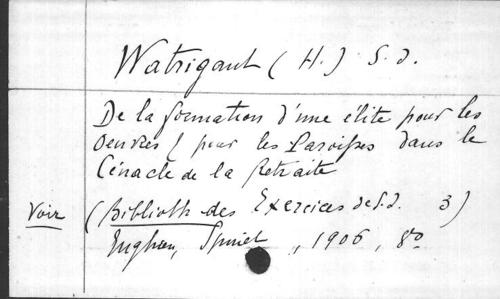 Watrigant (H.) S.J.
De la formation d'une élite pour les
Oeuvres & pour les Paroisses dans le
Cénacle de la Retraite
Voir (Biblioth. des Exercices de S.J. 3)
Enghien, Spinet, 1906, 8o